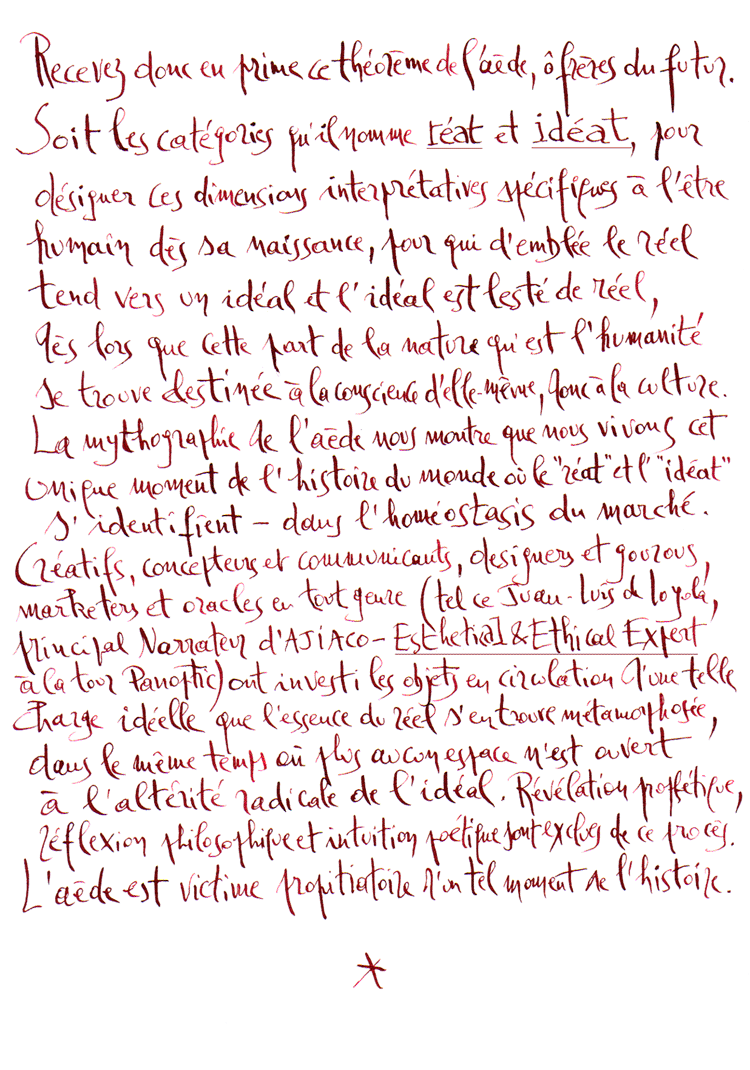 Recevez donc en prime ce théorème de l'aède, ô frères du futur.
Soit les catégories qu'il nomme réat et idéat, pour
désigner ces dimensions interprétatives spécifiques à l'être
humain dès sa naissance, pour qui d'emblée le réel
tend vers un idéal et l'idéal est lesté de réel,
dès lors que cette part de la nature qu'est l'humanité
se trouve destinée à la conscience d'elle-même, donc à la culture.
La mythographie de l'aède nous montre que nous vivons cet
unique moment de l'histoire du monde où le "réat" et l'"idéat"
s'identifient – dans l'homéostasis du marché.
Créatifs, concepteurs et communicants, designers et gourous,
marketers et oracles en tout genre (tel ce Juan-Luis de Loyola,
principal Narrateur d'AJIACO – Esthetical & Ethical Expert
à la tour Panoptic) ont investi les objets en circulation d'une telle
charge idéelle que l'essence du réel s'en trouve métamorphosée,
dans le même temps où plus aucun espace n'est ouvert
à l'altérité radicale de l'idéal. Révélation prophétique,
réflexion philosophique et intuition poétique sont exclues de ce procès.
L'aède est victime propitiatoire d'un tel moment de l'histoire.
*